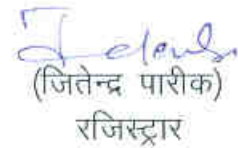 (जितेन्द्र पारीक)
रजिस्ट्रार